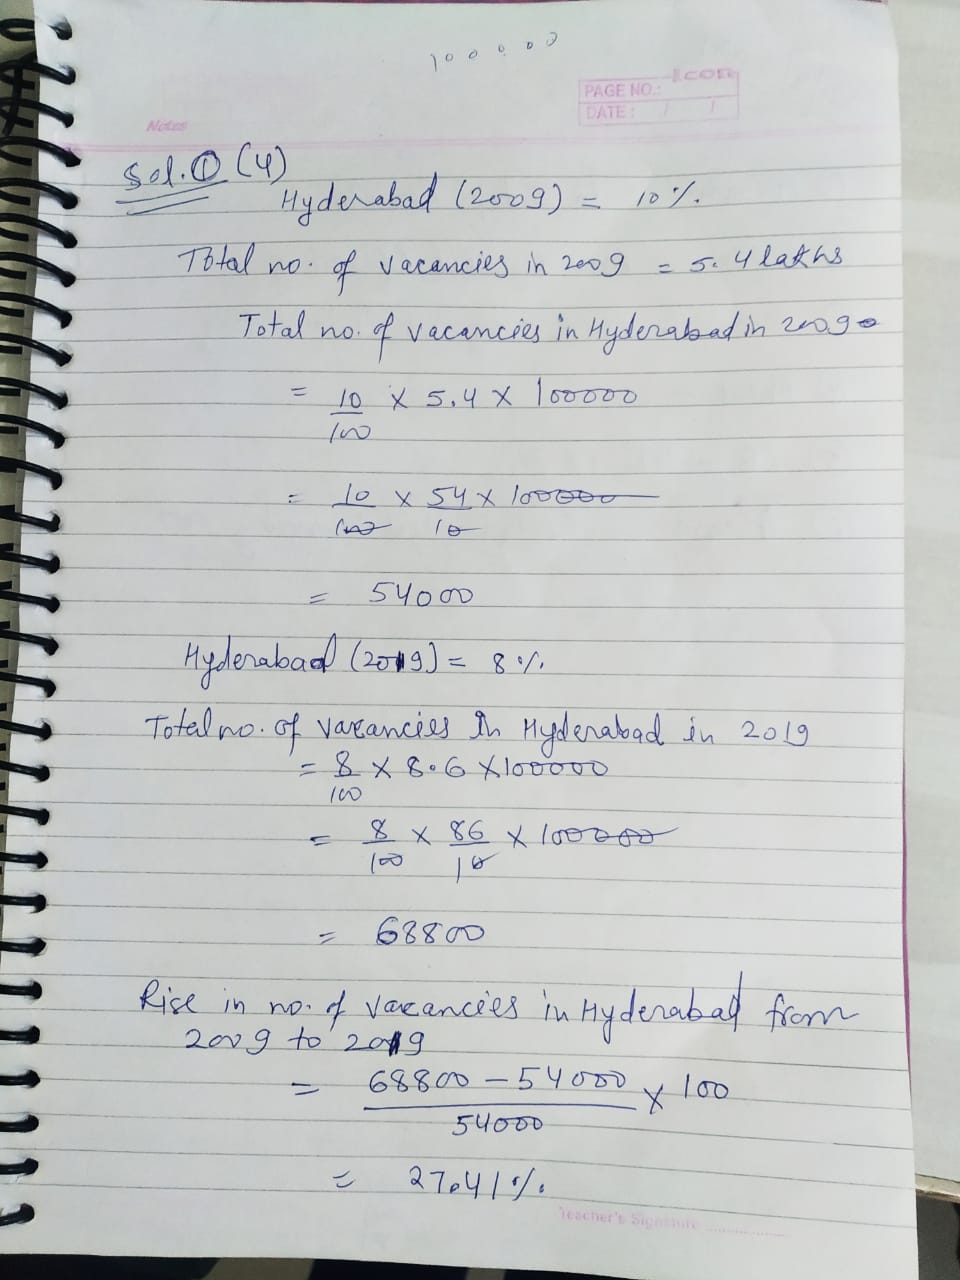 100000
Icon
PAGE NO.:
DATE: / /
Notes
Sol. ① (4)
Hyderabad (2009) = 10%.
Total no. of vacancies in 2009 = 5.4 lakhs
Total no. of vacancies in Hyderabad in 2009
= 10/100 × 5.4 × 100000
= 10/100 × 54/10 × 100000
= 54000
Hyderabad (2019) = 8%.
Total no. of vacancies in Hyderabad in 2019
= 8/100 × 8.6 × 100000
= 8/100 × 86/10 × 100000
= 68800
Rise in no. of vacancies in Hyderabad from
2009 to 2019
= 68800 - 54000/54000 × 100
= 27.41%.
Teacher's Signature